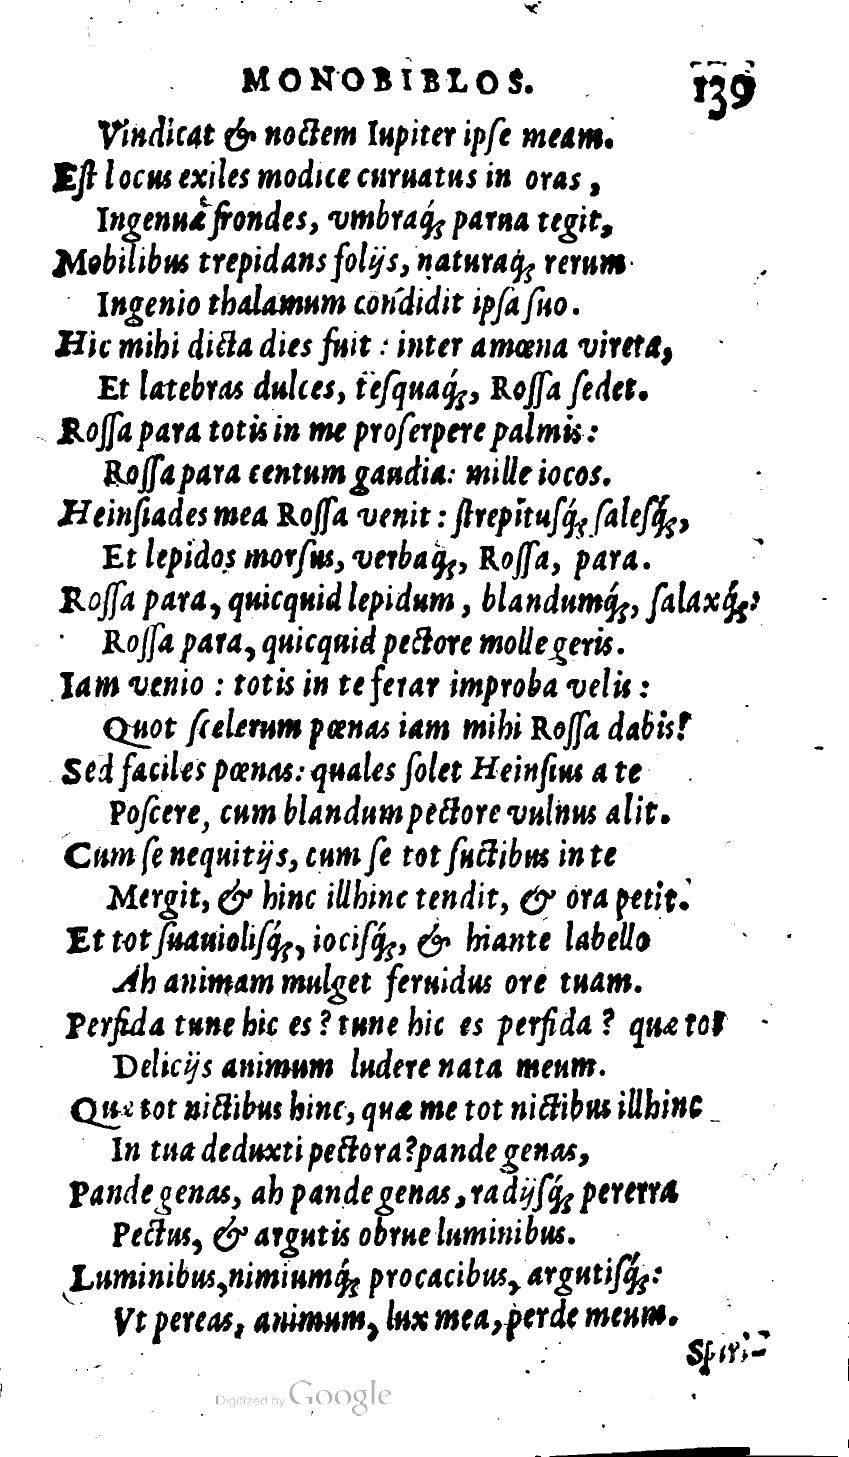 MONOBIBLOS. 139
Vindicat & noctem Iupiter ipſe meam.
Eſt locus exiles modice curuatus in oras,
Ingenuæ frondes, vmbraq́; parua tegit,
Mobilibus trepidans folijs, naturaq́; rerum
Ingenio thalamum condidit ipſa ſuo.
Hic mihi dicta dies fuit : inter amœna vireta,
Et latebras dulces, teſquaq́;, Roſſa ſedet.
Roſſa para totis in me proſerpere palmis:
Roſſa para centum gaudia: mille iocos.
Heinſiades mea Roſſa venit : ſtrepituſq́; ſaleſq́;,
Et lepidos morſus, verbaq́;, Roſſa, para.
Roſſa para, quicquid lepidum, blandumq́;, ſalaxq́;:
Roſſa para, quicquid pectore molle geris.
Iam venio : totis in te ferar improba velis :
Quot ſcelerum pœnas iam mihi Roſſa dabis!
Sed faciles pœnas: quales ſolet Heinſius a te
Poſcere, cum blandum pectore vulnus alit.
Cum ſe nequitijs, cum ſe tot ſuctibus in te
Mergit, & hinc illhinc tendit, & ora petit.
Et tot ſuauioliſq́;, iociſq́;, & hiante labello
Ah animam mulget feruidus ore tuam.
Perfida tune hic es ? tune hic es perfida ? quæ tot
Delicijs animum ludere nata meum.
Quæ tot nictibus hinc, quæ me tot nictibus illhinc
In tua deduxti pectora? pande genas,
Pande genas, ah pande genas, radijſq́; pererra
Pectus, & argutis obrue luminibus.
Luminibus, nimiumq́; procacibus, argutiſq́;:
Vt pereas, animum, lux mea, perde meum.
Spiri-
Digitized by Google